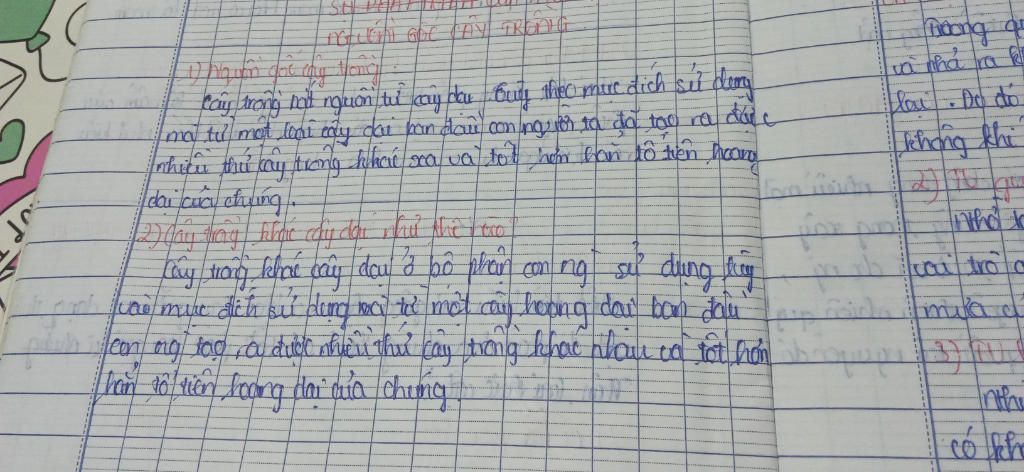 NGUỒN GỐC CÂY TRỒNG
1) Nguồn gốc cây trồng
Cây trồng bắt nguồn từ cây dại. Tùy theo mục đích sử dụng
mà từ một loài cây dại ban đầu con người ta đã tạo ra được
nhiều thứ cây trồng khác xa và tốt hơn hẳn tổ tiên hoang
dại của chúng.
2) Cây trồng khác cây dại như thế nào
Cây trồng khác cây dại ở bộ phận con ng sử dụng tùy
vào mục đích sử dụng mà từ một cây hoang dại ban đầu
con ng tạo ra được nhiều thứ cây trồng khác nhau và tốt hơn
hẳn tổ tiên hoang dại của chúng
và nhả ra
lại. Do đó
không khí
2)
nhờ
vai trò
mưa
3)
như
có